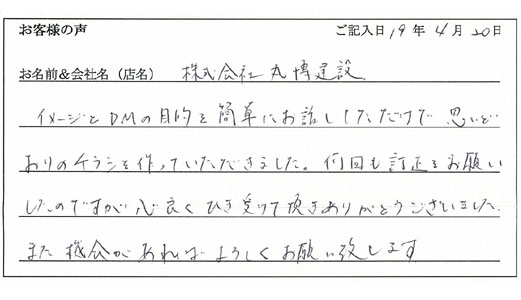 お客様の声 ご記入日 19 年 4 月 20 日
お名前&会社名(店名) 株式会社丸博建設
イメージとDMの目的を簡単にお話ししただけで 思いど
おりのチラシを作っていただきました。何回も訂正をお願い
したのですが 心良くひき受けて頂きありがとうございました
また機会があれば よろしくお願い致します